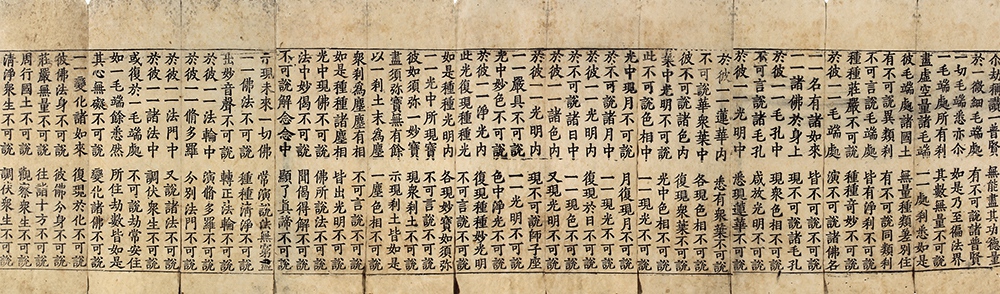 尒劫稱讚一普賢 無能盡其功德量
於一微細毛端處 有不可說諸普賢
一切毛端悉亦尒 如是乃至徧法界
一毛端處所有刹 其數無量不可說
盡虛空量諸毛端 一一處刹悉如是
彼毛端處諸國土 無量種類差別住
有不可說異類刹 有不可說同類刹
不可言說毛端處 皆有淨刹不可說
種種莊嚴不可說 種種奇妙不可說
於彼一一毛端處 演不可說諸佛名
一一名有諸如來 皆不可說不可說
一一諸佛於身上 現不可說諸毛孔
於彼一一毛孔中 現衆色相不可說
不可言說諸毛孔 咸放光明不可說
於彼一一光明中 悉現蓮華不可說
於彼一一蓮華內 悉有衆葉不可說
不可說華衆葉中 各現色相不可說
彼不可說諸色內 復現衆葉不可說
葉中光明不可說 光中色相不可說
此不可說色相中 一一現光不可說
光中現月不可說 月復現月不可說
於不可說諸月中 一一現光不可說
於彼一一光明內 復現於日不可說
於不可說諸日中 一一現色不可說
於彼一一諸色內 又現光明不可說
於彼一一光明內 現不可說師子座
一一嚴具不可說 一一光明不可說
光中妙色不可說 色中淨光不可說
於彼一一淨光內 復現種種妙光明
此光復現種種光 不可言說不可說
如是種種光明內 各現妙寶如須弥
一一光中所現寶 不可言說不可說
彼如須弥一妙寶 現衆刹土不可說
盡須弥寶無有餘 示現刹土皆如是
以一刹土末為塵 一塵色相不可說
衆刹為塵塵有相 不可言說不可說
如是種種諸塵相 皆出光明不可說
光中現佛不可說 佛所說法不可說
法中妙偈不可說 聞偈得解不可說
不可說解念念中 顯了真諦不可說
示現未來一切佛 常演說法無窮盡
一一佛法不可說 種種清淨不可說
出妙音聲不可說 轉正法輪不可說
於彼一一法輪中 演脩多羅不可說
於彼一一脩多羅 分別法門不可說
於彼一一法門中 又說諸法不可說
於彼一一諸法中 調伏衆生不可說
或復於一毛端處 不可說劫常安住
如一毛端餘悉然 所住劫數皆如是
其心無礙不可說 變化諸佛不可說
一一變化諸如來 復現於化不可說
彼佛法身不可說 彼佛分身不可說
莊嚴無量不可說 往詣十方不可說
周行國土不可說 觀察衆生不可說
清淨衆生不可說 調伏衆生不可說